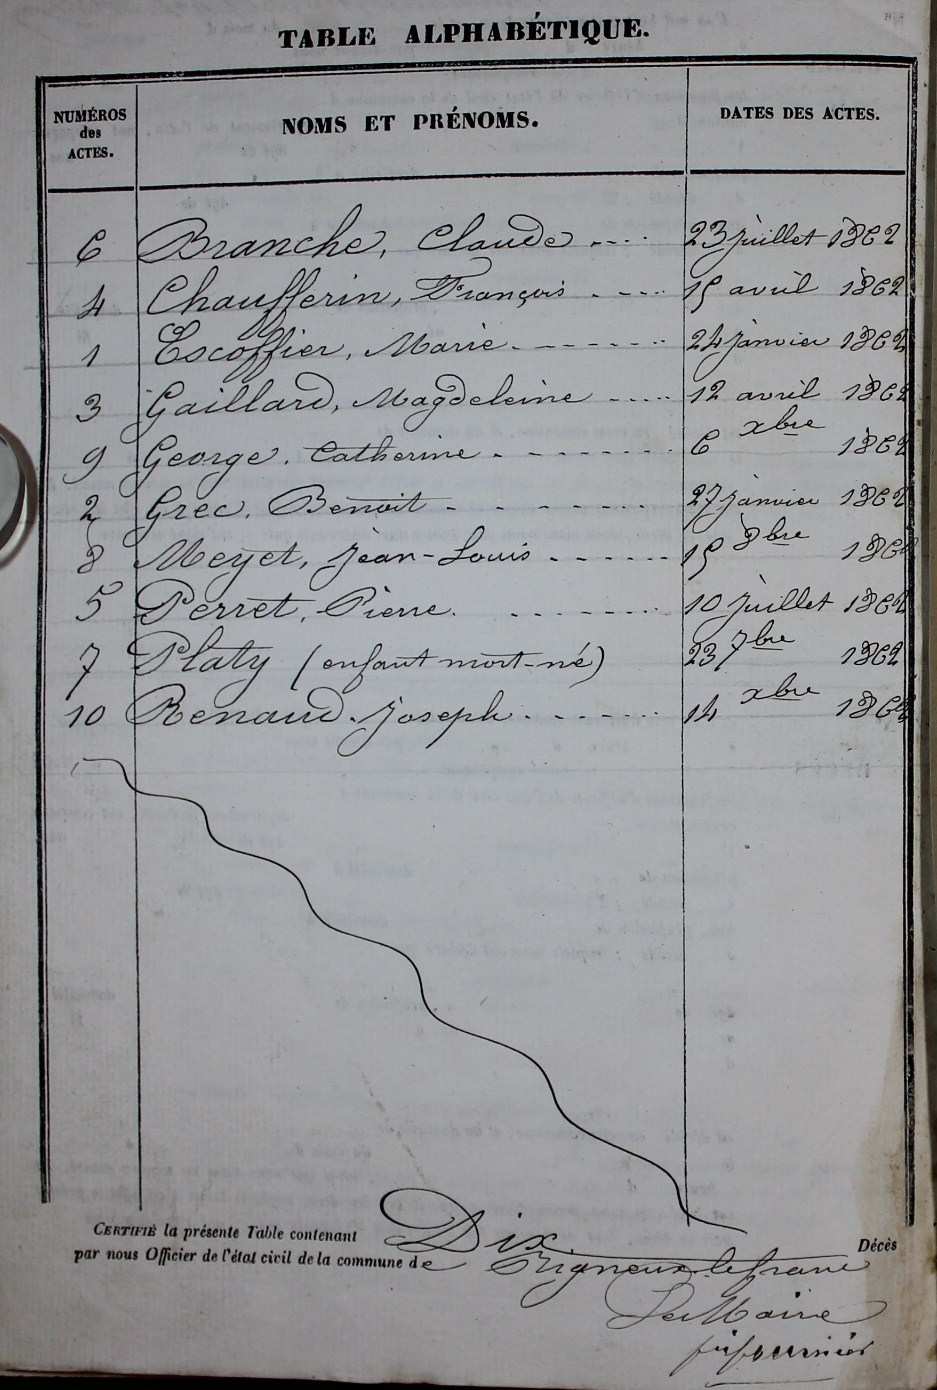 TABLE ALPHABÉTIQUE.
NUMÉROS des ACTES. NOMS ET PRÉNOMS. DATES DES ACTES.
6 Branche, Claude 23 juillet 1862
4 Chaufferin, François 15 avril 1862
1 Escoffier, Marie 24 janvier 1862
3 Gaillard, Magdeleine 12 avril 1862
9 George. Catherine 6 xbre 1862
2 Grec. Benoit 27 janvier 1862
8 Meyet, Jean-Louis 15 8bre 1862
5 Perret, Pierre. 10 juillet 1862
7 Platy (enfant mort-né) 23 7bre 1862
10 Renaud. Joseph 14 xbre 1862
CERTIFIÉ la présente Table contenant Dix Décès
par nous Officier de l'état civil de la commune de Trigneux-le-franc
Le Maire